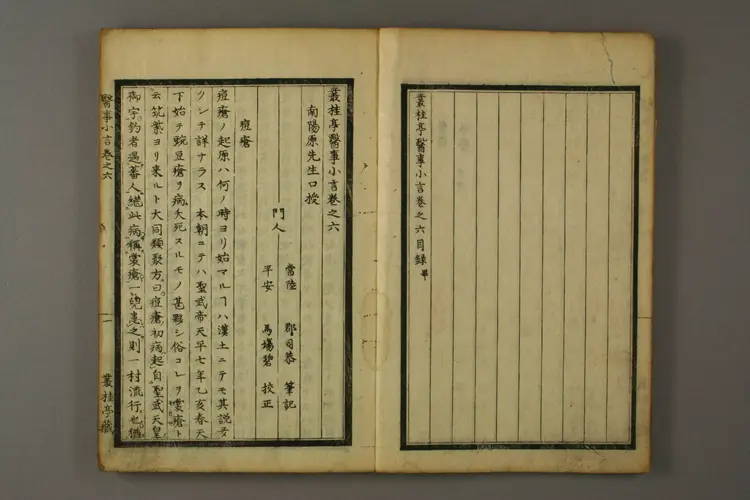 叢桂亭醫事小言巻之六目録 畢
叢桂亭醫事小言巻之六
南陽原先生口授
門人
常陸 郡司恭 筆記
平安 馬場碧 校正
痘瘡
痘瘡ノ起原ハ何ノ時ヨリ始マルヿハ漢土ニテモ其説多
クシテ詳ナラス 本朝ニテハ聖武帝天平七年乙亥春天
下始テ豌豆瘡ヲ病夭死スルモノ甚夥シ俗コレヲ裳瘡ト
云筑紫ヨリ来ルト大同類聚方曰痘瘡初病起自聖武天皇
御宇釣者遇蕃人継此病稱裳瘡一兒患之則一村流行也猶
醫事小言巻之六
一
叢桂亭藏